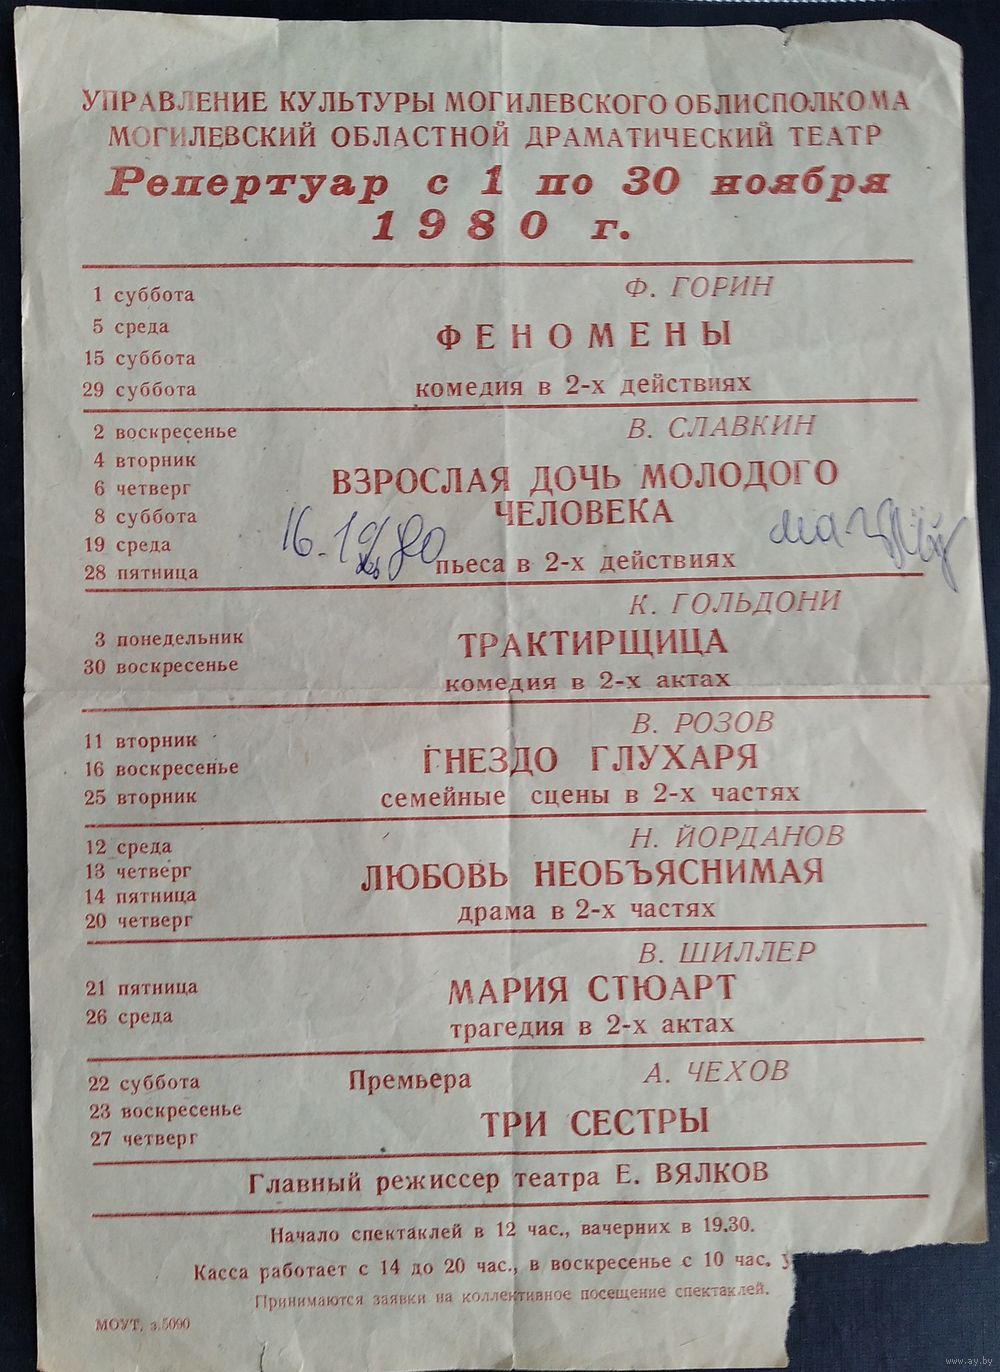 УПРАВЛЕНИЕ КУЛЬТУРЫ МОГИЛЕВСКОГО ОБЛИСПОЛКОМА
МОГИЛЕВСКИЙ ОБЛАСТНОЙ ДРАМАТИЧЕСКИЙ ТЕАТР
Репертуар с 1 по 30 ноября
1980 г.
1 суббота
5 среда
15 суббота
29 суббота
Ф. ГОРИН
ФЕНОМЕНЫ
комедия в 2-х действиях
2 воскресенье
4 вторник
6 четверг
8 суббота
19 среда
28 пятница
В. СЛАВКИН
ВЗРОСЛАЯ ДОЧЬ МОЛОДОГО
ЧЕЛОВЕКА
пьеса в 2-х действиях
3 понедельник
30 воскресенье
К. ГОЛЬДОНИ
ТРАКТИРЩИЦА
комедия в 2-х актах
11 вторник
16 воскресенье
25 вторник
В. РОЗОВ
ГНЕЗДО ГЛУХАРЯ
семейные сцены в 2-х частях
12 среда
13 четверг
14 пятница
20 четверг
Н. ЙОРДАНОВ
ЛЮБОВЬ НЕОБЪЯСНИМАЯ
драма в 2-х частях
21 пятница
26 среда
В. ШИЛЛЕР
МАРИЯ СТЮАРТ
трагедия в 2-х актах
22 суббота
23 воскресенье
27 четверг
Премьера
А. ЧЕХОВ
ТРИ СЕСТРЫ
Главный режиссер театра Е. ВЯЛКОВ
Начало спектаклей в 12 час., вачерних в 19.30.
Касса работает с 14 до 20 час., в воскресенье с 10 час.
Принимаются заявки на коллективное посещение спектаклей.
МОУТ, з.5090
www.ay.by